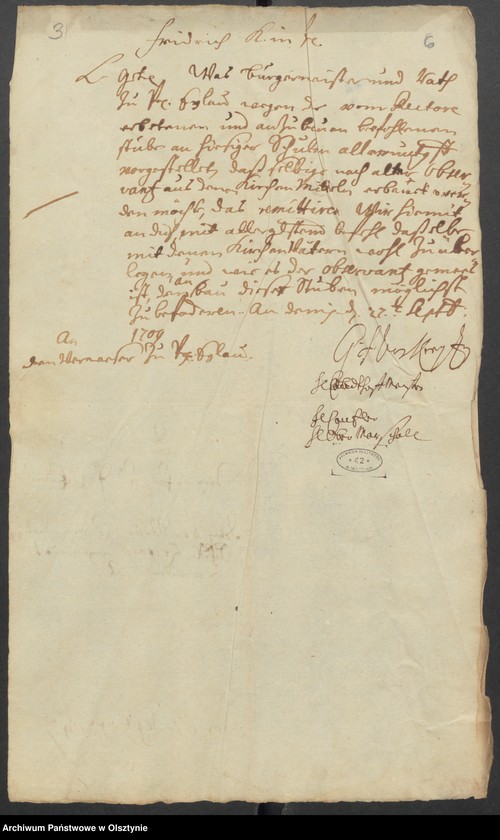 3
6
Fridrich K. in Pr.
L. Gete. Was Bürgermeister und Rath
zu Pr. Eylau wegen der vom Rectore
erbetenen und anzubauen befohlenen
stube an hiesiger Schulen allerunthgst
vorgestellet, daß selbige nach alter obser-
vantz aus denen Kirchen Mitteln erbauet wer-
den möchte, das remittiren Wir hiemit
an dich mit allergdstem befehl daselbe
mit denen Kirchen Vätern wohl zu über-
legen, und wie es der observantz gemeß
ist, den an bau dieser Stuben möglichst
zu befoderen. den 27.t Sept.
1709
An
den Verweser zu Pr. Eylau.
H Ober Marschall
42
Archiwum Państwowe w Olsztynie